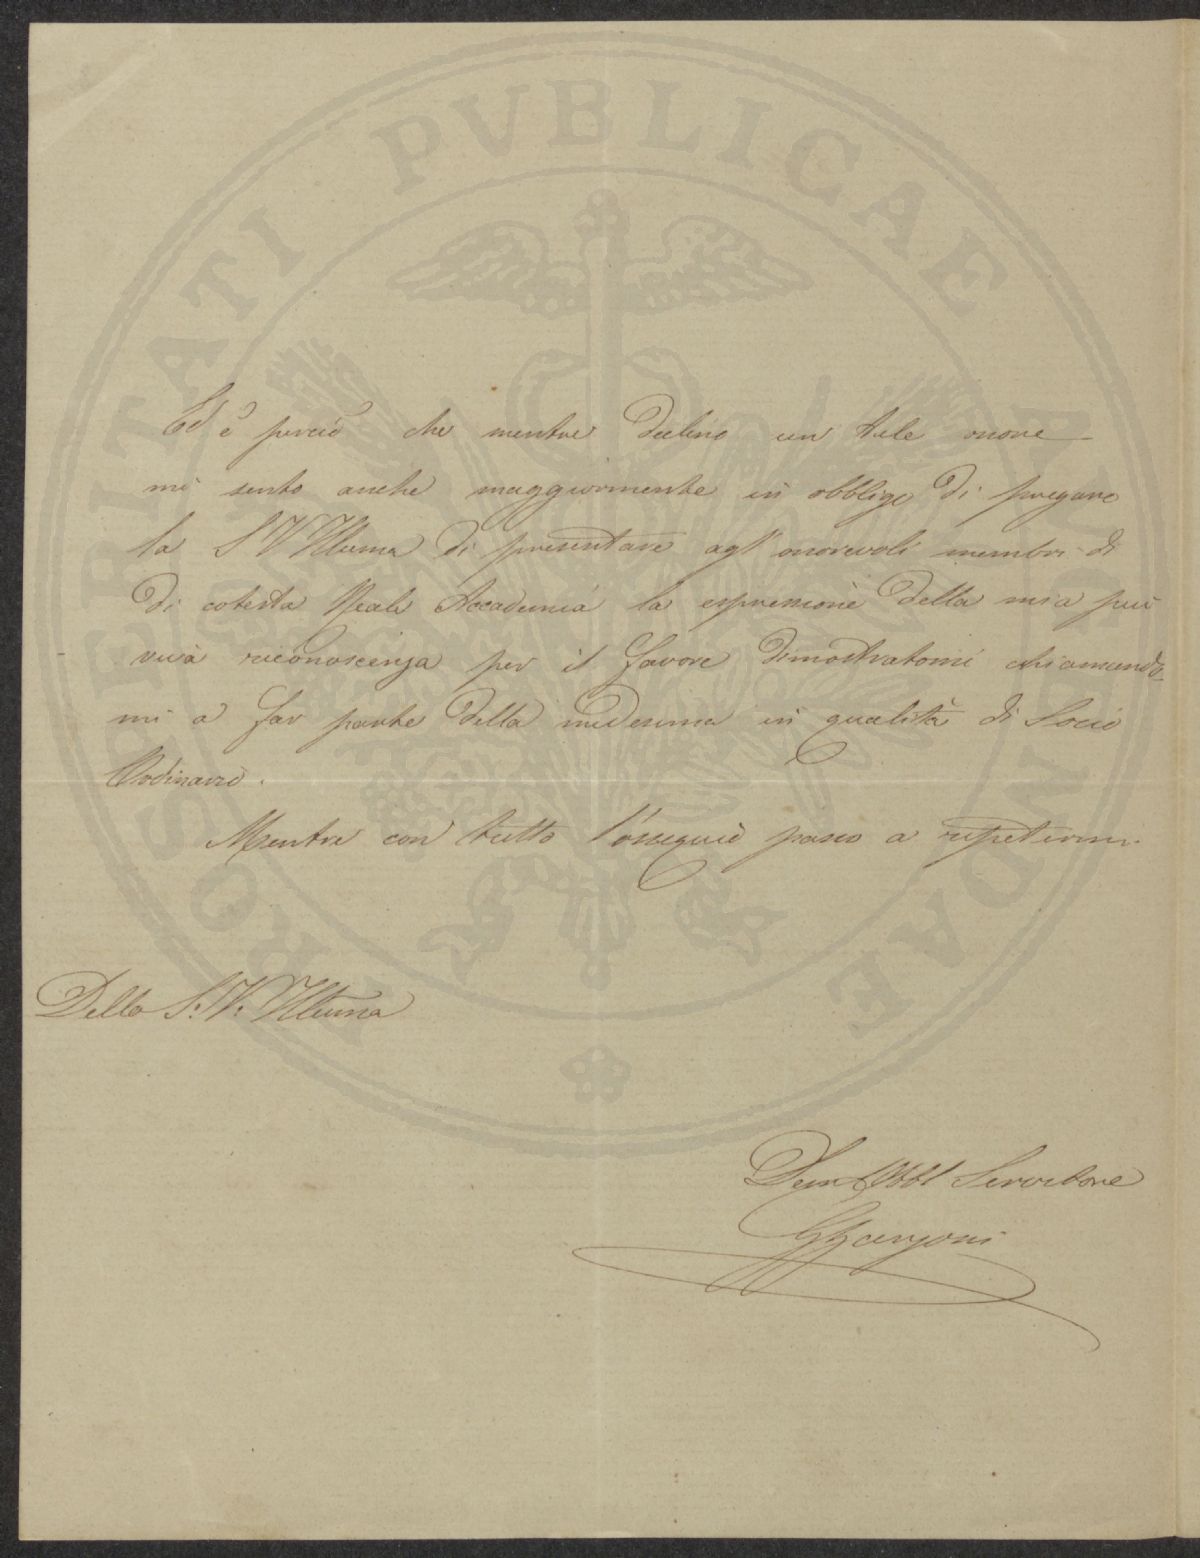 Ed è perciò che mentre declino un tale onore
mi sento anche maggiormente in obbligo di pregare
la S V Illuma di presentare agl' onorevoli membri di
di cotesta Reale Accademia la espressione della mia più
viva riconoscenza per il favore dimostratomi chiamando-
mi a far parte della medesima in qualità di Socio
Ordinario.
Mentre con tutto l'ossequio passo a ripetermi
Della S: V: Illuma
Obbl Servitore
PROSPERITATI PVBLICAE AVGENDAE